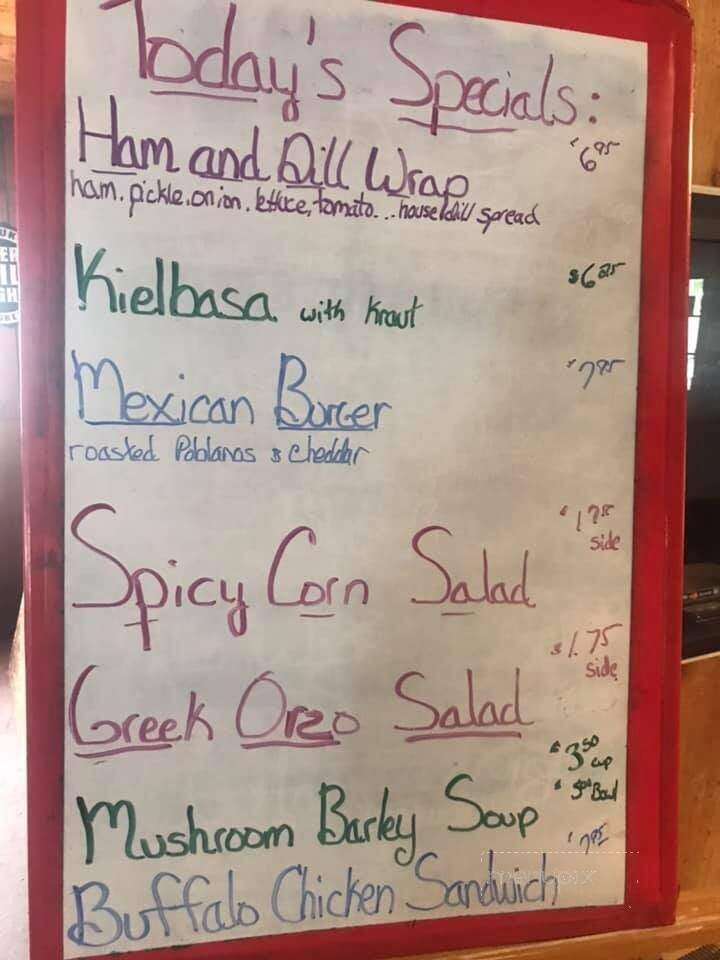 Today's Specials:
Ham and Dill Wrap $6.95
ham. pickle. onion. lettuce, tomato... house dill spread
Kielbasa with Kraut
Mexican Burger $7.95
roasted Poblanos & Cheddar
Spicy Corn Salad side
Greek Orzo Salad $1.75 side
Mushroom Barley Soup $3.50 cup
Bowl
Buffalo Chicken Sandwich